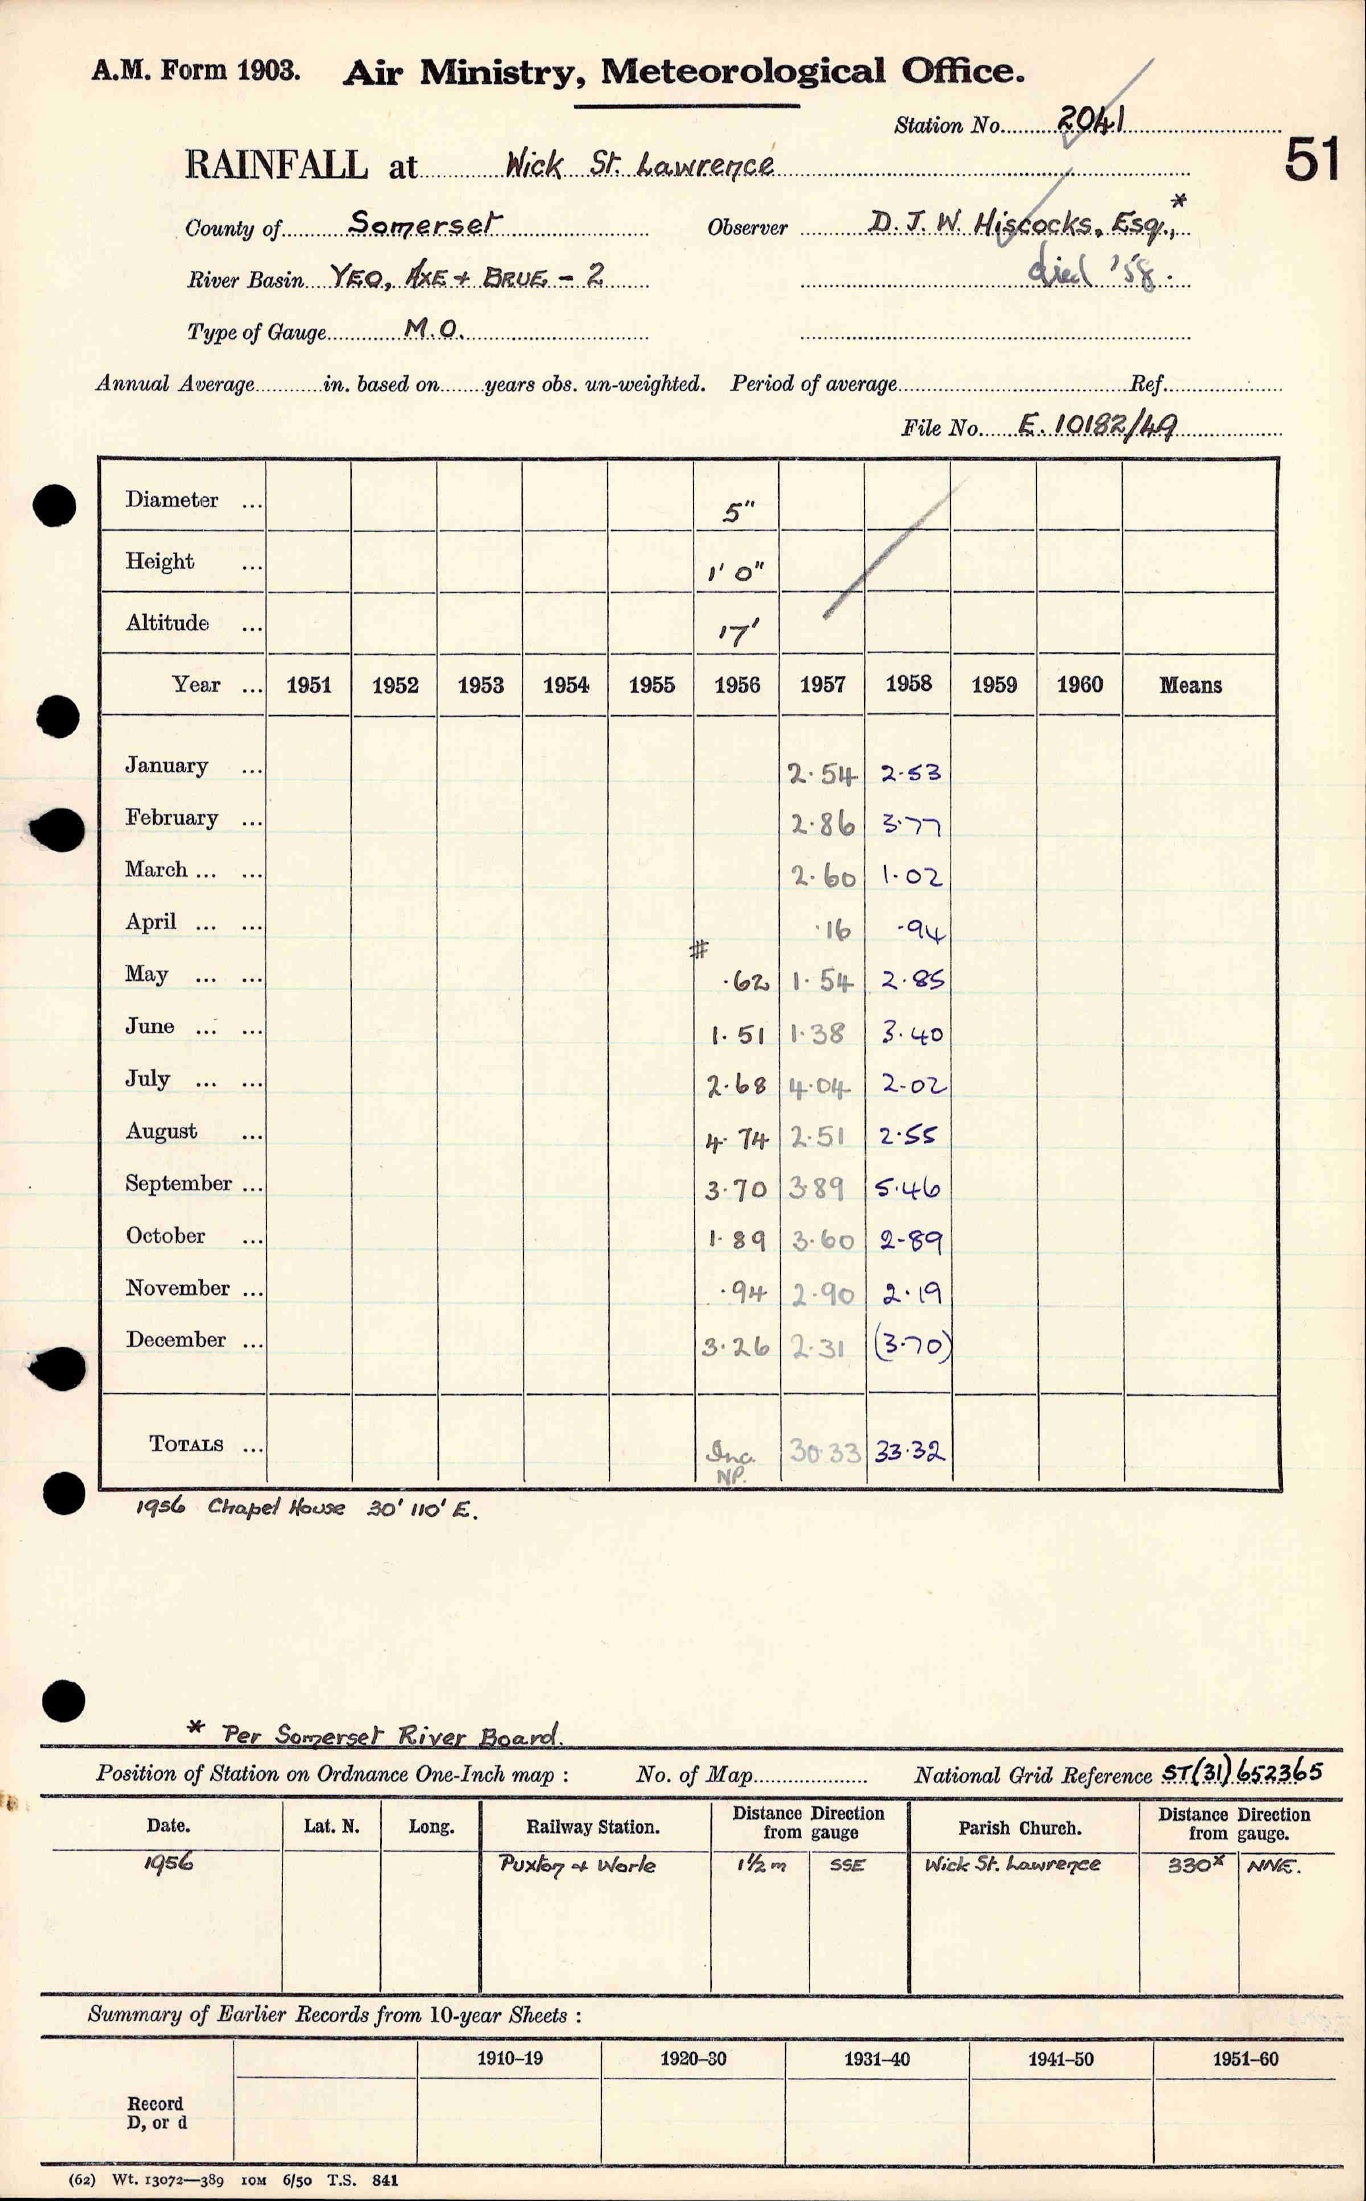 A.M. Form 1903. Air Ministry, Meteorological Office.
Station No. 2041
51
RAINFALL at Wick St. Lawrence
County of Somerset Observer D. J. W. Hiscocks, Esq., *
River Basin YEO, AXE + BRUE - 2 died '58.
Type of Gauge M.O.
Annual Average in. based on years obs. un-weighted. Period of average Ref.
File No. E. 10182/49
Diameter ... 5"
Height ... 1' 0"
Altitude ... 17'
Year ... 1951 1952 1953 1954 1955 1956 1957 1958 1959 1960 Means
January ... 2.54 2.53
February ... 2.86 3.77
March ... ... 2.60 1.02
April ... ... .16 .94
#
May ... ... .62 1.54 2.85
June ... ... 1.51 1.38 3.40
July ... ... 2.68 4.04 2.02
August ... 4.74 2.51 2.55
September ... 3.70 3.89 5.46
October ... 1.89 3.60 2.89
November ... .94 2.90 2.19
December ... 3.26 2.31 (3.70)
TOTALS ... Inc. 30.33 33.32
NP.
1956 Chapel House 30' 110' E.
* Per Somerset River Board.
Position of Station on Ordnance One-Inch map : No. of Map National Grid Reference ST(31)652365
Date. Lat. N. Long. Railway Station. Distance Direction from gauge Parish Church. Distance Direction from gauge.
1956 Puxton & Worle 1½ m SSE Wick St. Lawrence 330x NNE.
Summary of Earlier Records from 10-year Sheets :
1910–19 1920–30 1931–40 1941–50 1951–60
Record
D, or d
(62) Wt. 13072—389 10M 6/50 T.S. 841